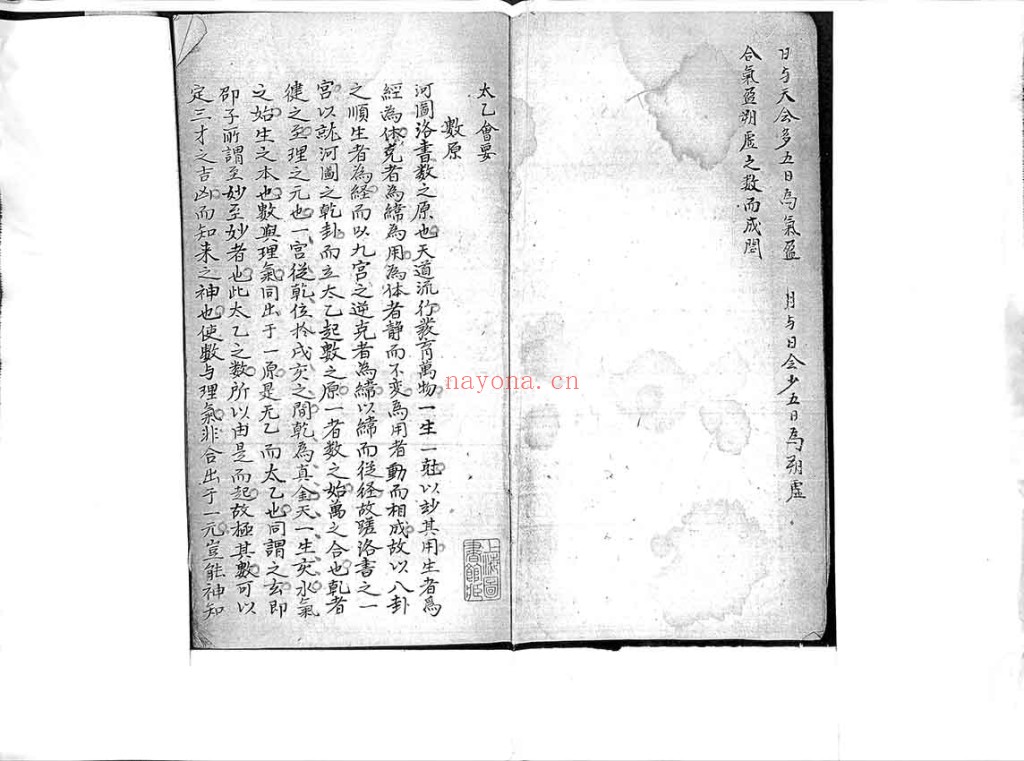 日与天会多五日為氣盈 月与日会少五日爲朔虛
合氣盈朔虛之数而成閏
太乙會要
數原
河圖洛書數之原也天道流行發育萬物一生一尅以玅其用生者爲
經為体克者為緯為用為体者静而不变為用者動而相成故以八卦
之順生者為経而以九宮之逆克者為緯以緯而従経故䂀洛書之一
宮以就河圖之乾卦而立太乙起數之原一者数之始萬之合也乹者
健之至理之元也一宮從乾位扵戌亥之間乾為真金天一生亥水氣
之始生之本也數與理氣同出于一原是无乙而太乙也同謂之玄即
邵子所謂至妙至妙者也此太乙之数所以由是而起故極其數可以
定三才之吉凶而知来之神也使數与理氣非合出于一元豈能神知
上海圖
書館藏
nayona.cn